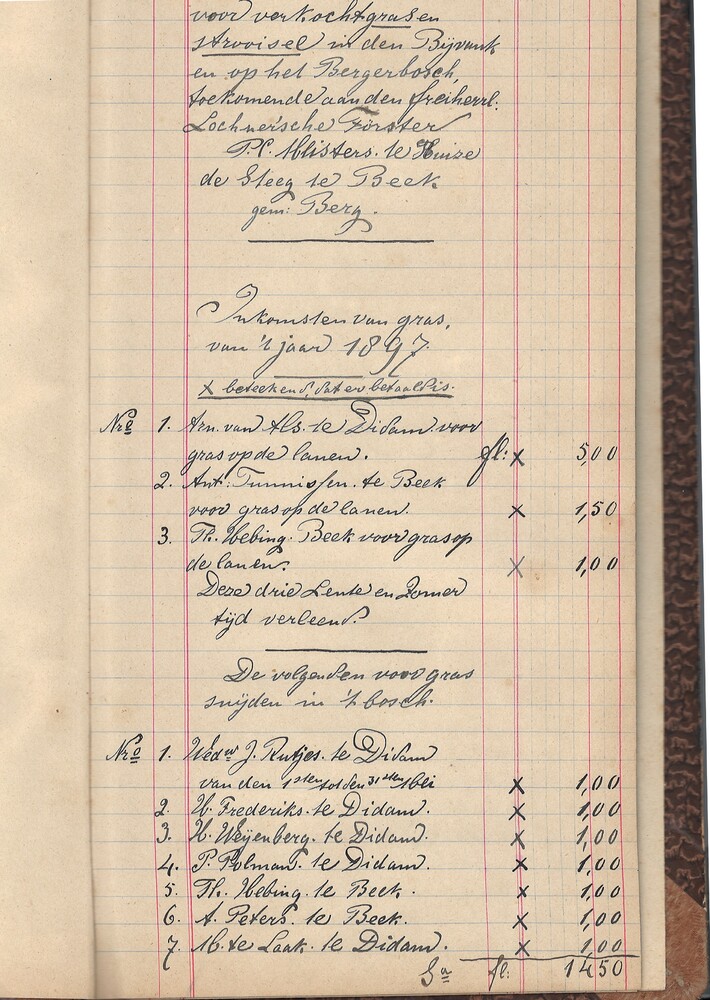 voor verkocht gras en
strooisel in den Bijvank
en op het Bergerbosch,
toekomende aan den freiherrl:
Lochner'sche Förster
P.C. Misters. te Huize
de Steeg te Beek
gem: Berg.
Inkomsten van gras,
van 't jaar 1897.
x beteekend, dat er betaald is.
Nro 1. Arn. van Als. te Didam voor
gras op de lanen. fl: x 5,00
2. Ant. Tunnissen. te Beek
voor gras op de lanen. x 1,50
3. Th. Hebing. Beek voor gras op
de lanen. x 1,00
Deze drie Lente en Zomer
tijd verleend.
De volgenden voor gras
snijden in 't bosch.
Nro 1. Wedw J. Rutjes. te Didam
van den 1sten tot den 31sten Mei x 1,00
2. H. Frederiks. te Didam. x 1,00
3. H. Weijenberg. te Didam. x 1,00
4. P. Polman. te Didam. x 1,00
5. Th. Hebing. te Beek. x 1,00
6. A. Peters. te Beek. x 1,00
7. M. te Laak. te Didam. x 1,00
Sa fl: 1450